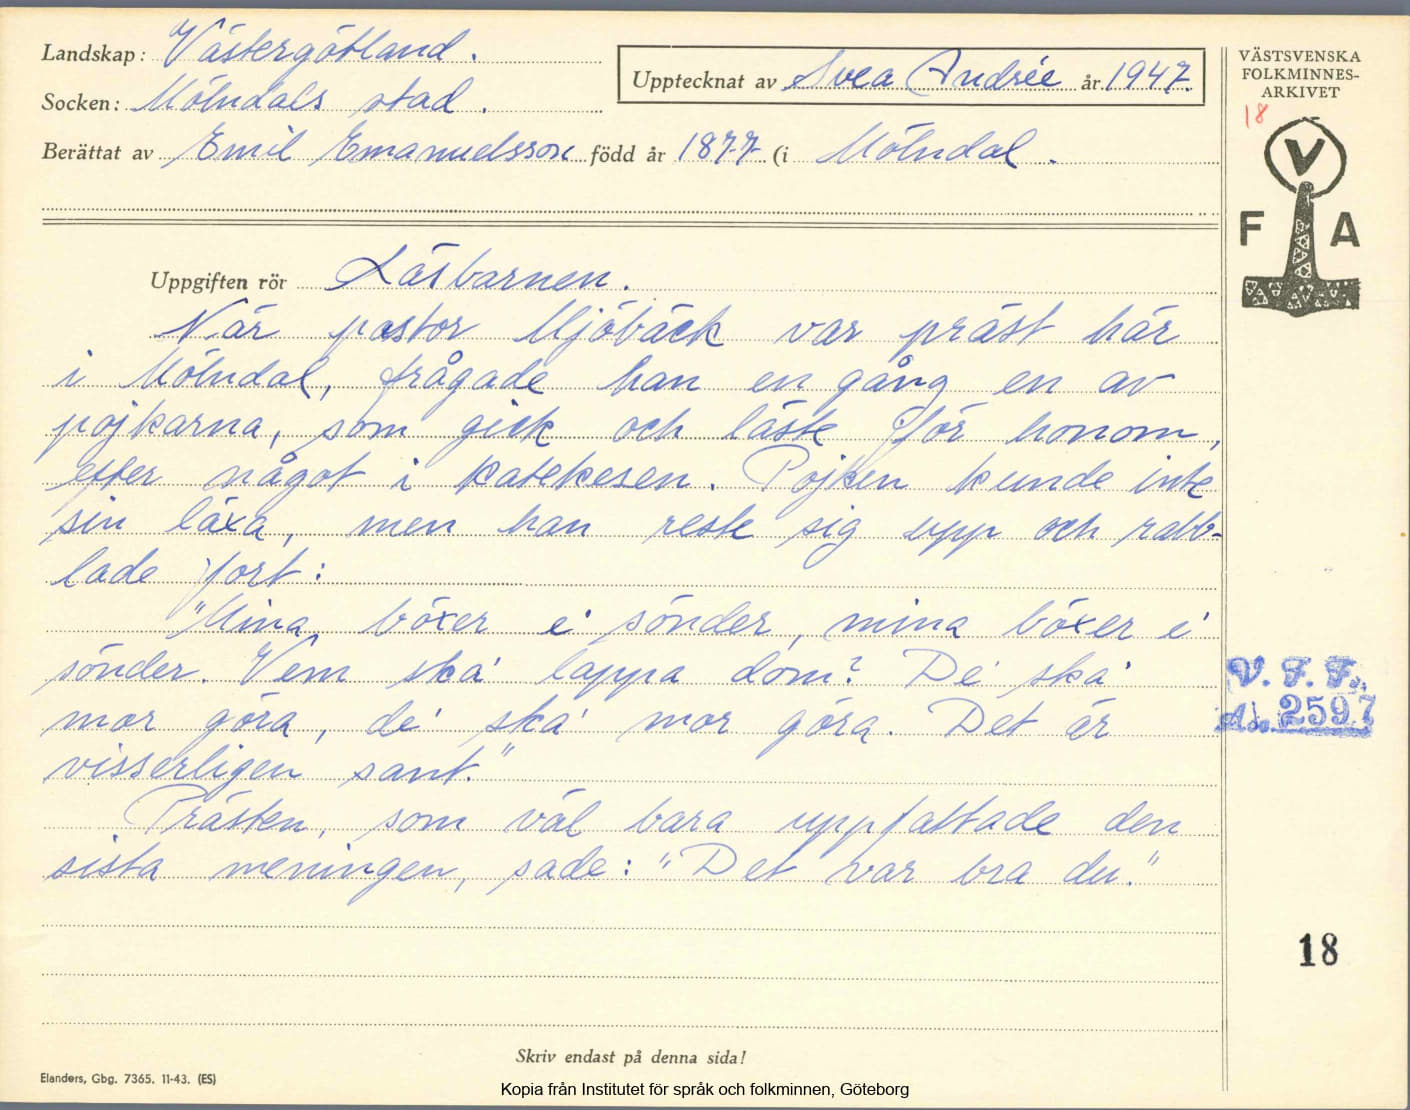 Landskap: Västergötland.
Socken: Mölndals stad.
Upptecknat av Svea Andrée år 1947.
Berättat av Emil Emanuelsson född år 1877 (i Mölndal.
VÄSTSVENSKA
FOLKMINNES-
ARKIVET
18
V
F A
Uppgiften rör Läsbarnen.
När pastor Mjöbäck var präst här
i Mölndal, frågade han en gång en av
pojkarna, som gick och läste för honom,
efter något i katekesen. Pojken kunde inte
sin läxa, men han reste sig upp och rabb-
lade fort:
"Mina böxer e' sönder, mina böxer e'
sönder. Vem ska' lappa dom? De' ska'
mor göra, de' ska' mor göra. Det är
visserligen sant."
Prästen, som väl bara uppfattade den
sista meningen, sade: "Det var bra du."
V. F. F.
2597
18
Skriv endast på denna sida!
Elanders, Gbg. 7365. 11-43. (ES)
Kopia från Institutet för språk och folkminnen, Göteborg